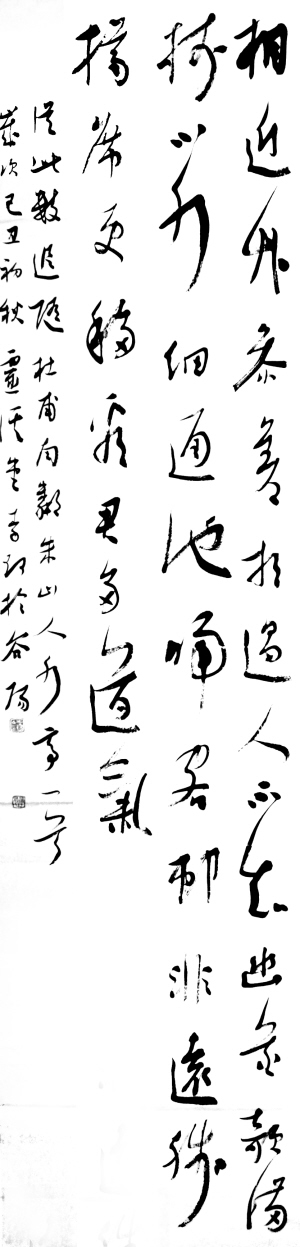 相近竹參差相過人不知幽花欹滿
樹小水細通池歸客邨非遠殘
樽席更移看君多道氣
從此數追隨 杜甫南鄰朱山人水亭一首
歲次己丑初秋 靈溪 李 於谷陽